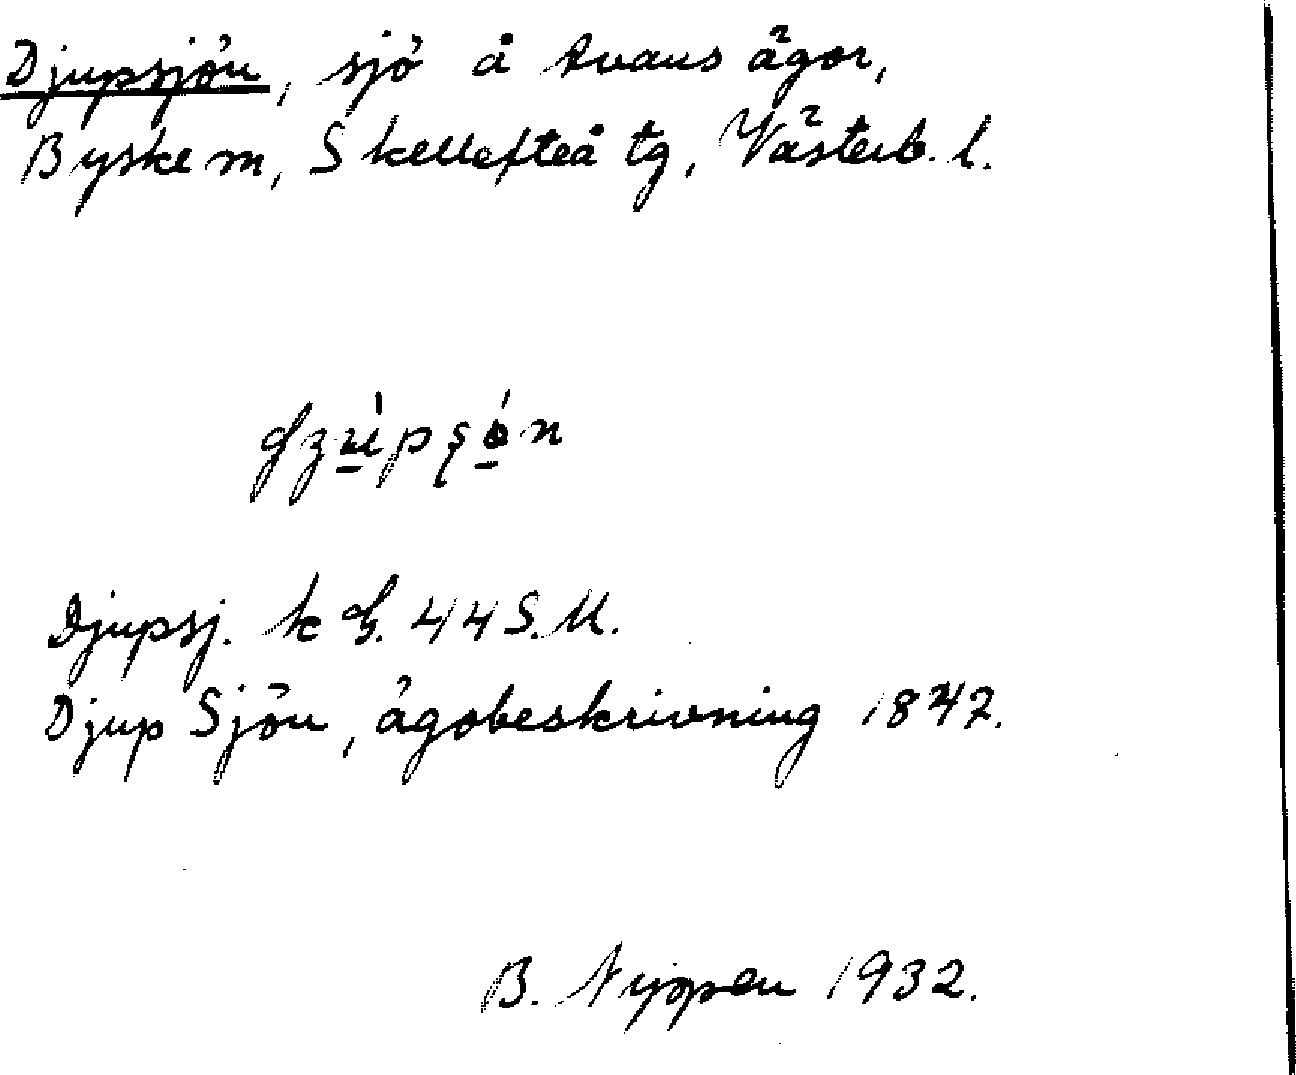 Djupsjön, sjö å Avans ägor,
Byske m, Skellefteå tg, Västerb. l.
Djupsj. k bl. 44 S.M.
Djup Sjön, ägobeskrivning 1842.
B. 1932.